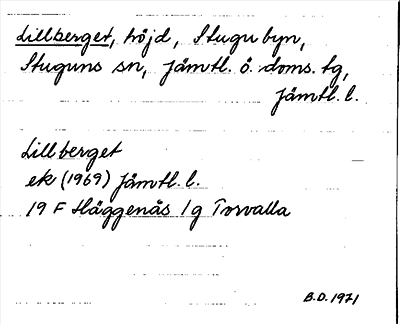 Lillberget, höjd, Stugu byn,
Stuguns sn, Jämtl. ö. doms. tg,
Jämtl. l.
Lillberget
ek (1969) Jämtl. l.
19 F Häggenås 1g Torvalla
B.D. 1971